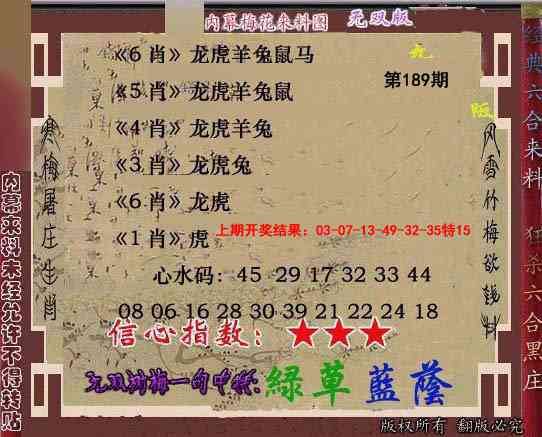 内幕梅花来料图 无双版
《6肖》龙虎羊兔鼠马
第189期
《5肖》龙虎羊兔鼠
《4肖》龙虎羊兔
《3肖》龙虎兔
《6肖》龙虎
《1肖》虎
上期开奖结果：03-07-13-49-32-35特15
心水码：45 29 17 32 33 44
08 06 16 28 30 39 21 22 24 18
信心指数：★★★
无双剑梅一句中特:綠草藍蔭
版权所有 翻版必究
寒梅屠庄生肖
风雪竹梅欲钱料
内幕来料未经允许不得转贴
经典六合来料
狂杀六合黑庄